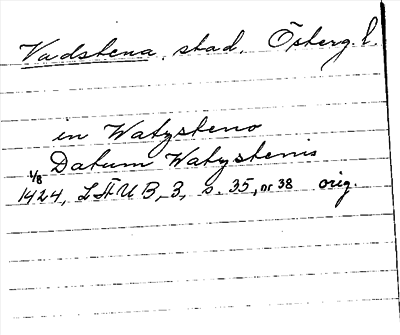 Vadstena, stad, Österg. l.
in Watzsteno
Datum Watzstenis
1/8 1424, LÄUB, 3, s. 35, nr 38 orig.